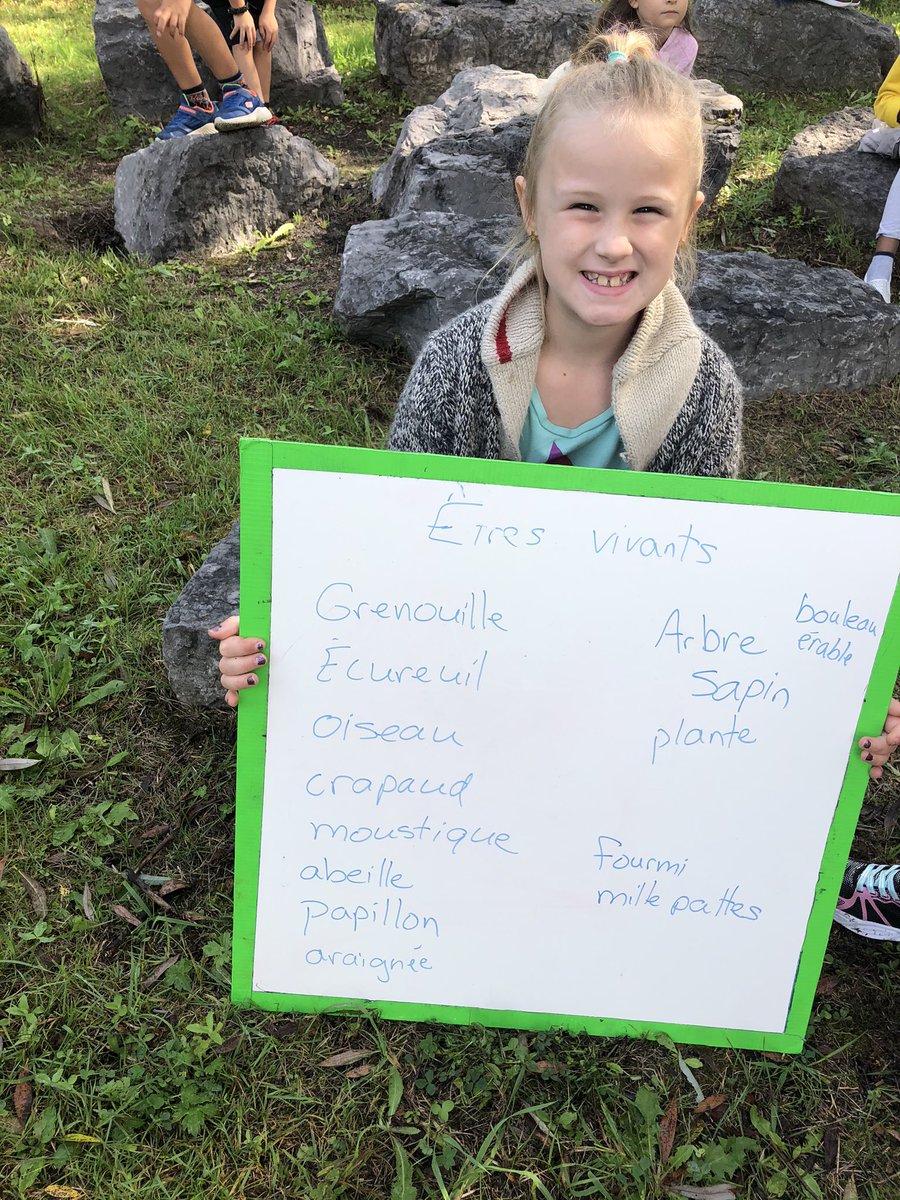 Êtres vivants
Grenouille
Écureuil
oiseau
crapaud
moustique
abeille
papillon
araignée
Arbre
bouleau
érable
Sapin
plante
fourmi
mille pattes